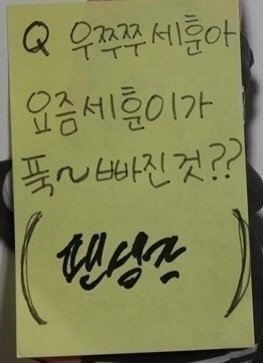 Q 우쭈쭈 세훈아
요즘세훈이가
푹~ 빠진것??
(          )